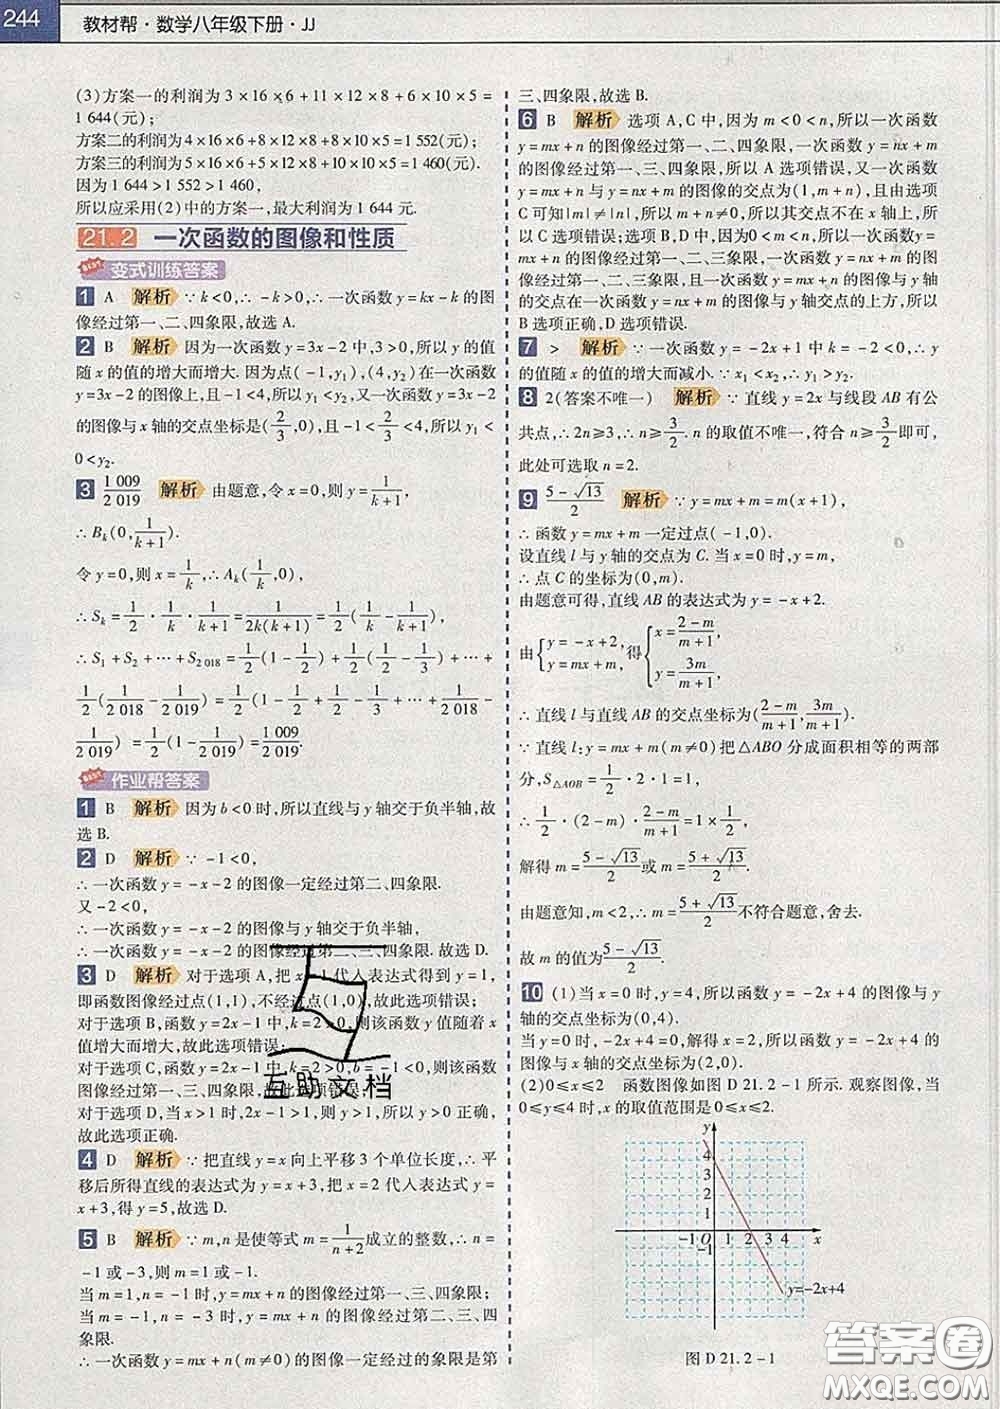 244
教材帮·数学八年级下册·JJ
(3)方案一的利润为 3×16×6+11×12×8+6×10×5=
1 644(元);
方案二的利润为4×16×6+8×12×8+8×10×5=1 552(元);
方案三的利润为5×16×6+5×12×8+10×10×5=1 460(元).
因为 1 644>1 552>1 460,
所以应采用(2)中的方案一,最大利润为 1 644 元.
21.2 一次函数的图像和性质
变式训练答案
1 A 解析 ∵k<0,∴-k>0,∴一次函数 y=kx-k 的图
像经过第一、二、四象限,故选 A.
2 B 解析 因为一次函数 y=3x-2 中,3>0,所以 y 的值
随 x 的值的增大而增大.因为点(-1,y₁),(4,y₂)在一次函数
y=3x-2 的图像上,且-1<4,所以 y₁<y₂,又一次函数 y=3x-2
的图像与 x 轴的交点坐标是(2/3,0),且-1<2/3<4,所以 y₁<
0<y₂.
3 1 009/2 019 解析 由题意,令 x=0,则 y=1/(k+1),
∴B_k(0,1/(k+1)).
令 y=0,则 x=1/k,∴A_k(1/k,0),
∴S_k=1/2·1/k·1/(k+1)=1/(2k(k+1))=1/2(1/k-1/(k+1)),
∴S₁+S₂+⋯+S₂₀₁₈=1/2(1-1/2)+1/2(1/2-1/3)+⋯+
1/2(1/2 018-1/2 019)=1/2(1-1/2+1/2-1/3+⋯+1/2 018-
1/2 019)=1/2(1-1/2 019)=1 009/2 019.
作业帮答案
1 B 解析 因为 b<0 时,所以直线与 y 轴交于负半轴,故
选 B.
2 D 解析 ∵-1<0,
∴一次函数 y=-x-2 的图像一定经过第二、四象限.
又-2<0,
∴一次函数 y=-x-2 的图像与 y 轴交于负半轴,
∴一次函数 y=-x-2 的图像经过第二、三、四象限.故选 D.
3 D 解析 对于选项 A,把 x=1 代入表达式得到 y=1,
即函数图像经过点(1,1),不经过点(1,0),故此选项错误;
对于选项 B,函数 y=2x-1 中,k=2>0,则该函数 y 值随着 x
值增大而增大,故此选项错误;
对于选项 C,函数 y=2x-1 中,k=2>0,b=-1<0,则该函数
图像经过第一、三、四象限,故此选项错误;
对于选项 D,当 x>1 时,2x-1>1,则 y>1,所以 y>0 正确,
故此选项正确.
4 D 解析 ∵把直线 y=x 向上平移 3 个单位长度,∴平
移后所得直线的表达式为 y=x+3,把 x=2 代入表达式 y=
x+3,得 y=5,故选 D.
5 B 解析 ∵m,n 是使等式 m=1/(n+2)成立的整数,∴n=
-1 或-3,则 m=1 或-1.
当 m=1,n=-1 时,y=mx+n 的图像经过第一、三、四象限;
当 m=-1,n=-3 时,y=mx+n 的图像经过第二、三、四
象限.
∴一次函数 y=mx+n(m≠0)的图像一定经过的象限是第
三、四象限,故选 B.
6 B 解析 选项 A,C 中,因为 m<0<n,所以一次函数
y=mx+n 的图像经过第一、二、四象限,一次函数 y=nx+m
的图像经过第一、三、四象限,所以 A 选项错误;因为函数
y=mx+n 与 y=nx+m 的图像的交点为(1,m+n),且由选项
C 可知|m|≠|n|,所以 m+n≠0,所以其交点不在 x 轴上,所
以 C 选项错误;选项 B,D 中,因为0<m<n,所以一次函数 y=
mx+n 的图像经过第一、二、三象限,一次函数 y=nx+m 的图
像经过第一、二、三象限,且一次函数 y=mx+n 的图像与 y 轴
的交点在一次函数 y=nx+m 的图像与 y 轴交点的上方,所以
B 选项正确,D 选项错误.
7 > 解析 ∵一次函数 y=-2x+1 中 k=-2<0,∴y
的值随 x 的值的增大而减小.∵x₁<x₂,∴y₁>y₂.
8 2(答案不唯一) 解析 ∵直线 y=2x 与线段 AB 有公
共点,∴2n≥3,∴n≥3/2.n 的取值不唯一,符合 n≥3/2即可,
此处可选取 n=2.
9 (5-√13)/2 解析 ∵y=mx+m=m(x+1),
∴函数 y=mx+m 一定过点(-1,0).
设直线 l 与 y 轴的交点为 C.当 x=0时,y=m,
∴点 C 的坐标为(0,m).
由题意可得,直线 AB 的表达式为 y=-x+2.
由{y=-x+2, y=mx+m, 得{x=(2-m)/(m+1), y=3m/(m+1),
∴直线 l 与直线 AB 的交点坐标为((2-m)/(m+1),3m/(m+1)).
∵直线 l:y=mx+m(m≠0)把△ABO 分成面积相等的两部
分,S△AOB=1/2·2·1=1,
∴1/2·(2-m)·(2-m)/(m+1)=1×1/2,
解得 m=(5-√13)/2或 m=(5+√13)/2.
由题意知,m<2,∴m=(5+√13)/2不符合题意,舍去.
故 m 的值为(5-√13)/2.
10 (1)当 x=0 时,y=4,所以函数 y=-2x+4 的图像与 y
轴的交点坐标为(0,4).
当 y=0 时,-2x+4=0,解得 x=2,所以函数 y=-2x+4 的
图像与 x 轴的交点坐标为(2,0).
(2)0≤x≤2 函数图像如图 D 21.2-1 所示.观察图像,当
0≤y≤4时,x 的取值范围是0≤x≤2.
y
4
3
2
1
-1 O 1 2 3 4 x
-1
y=-2x+4
图 D 21.2-1
互助文档
答案圈
MXQE.COM